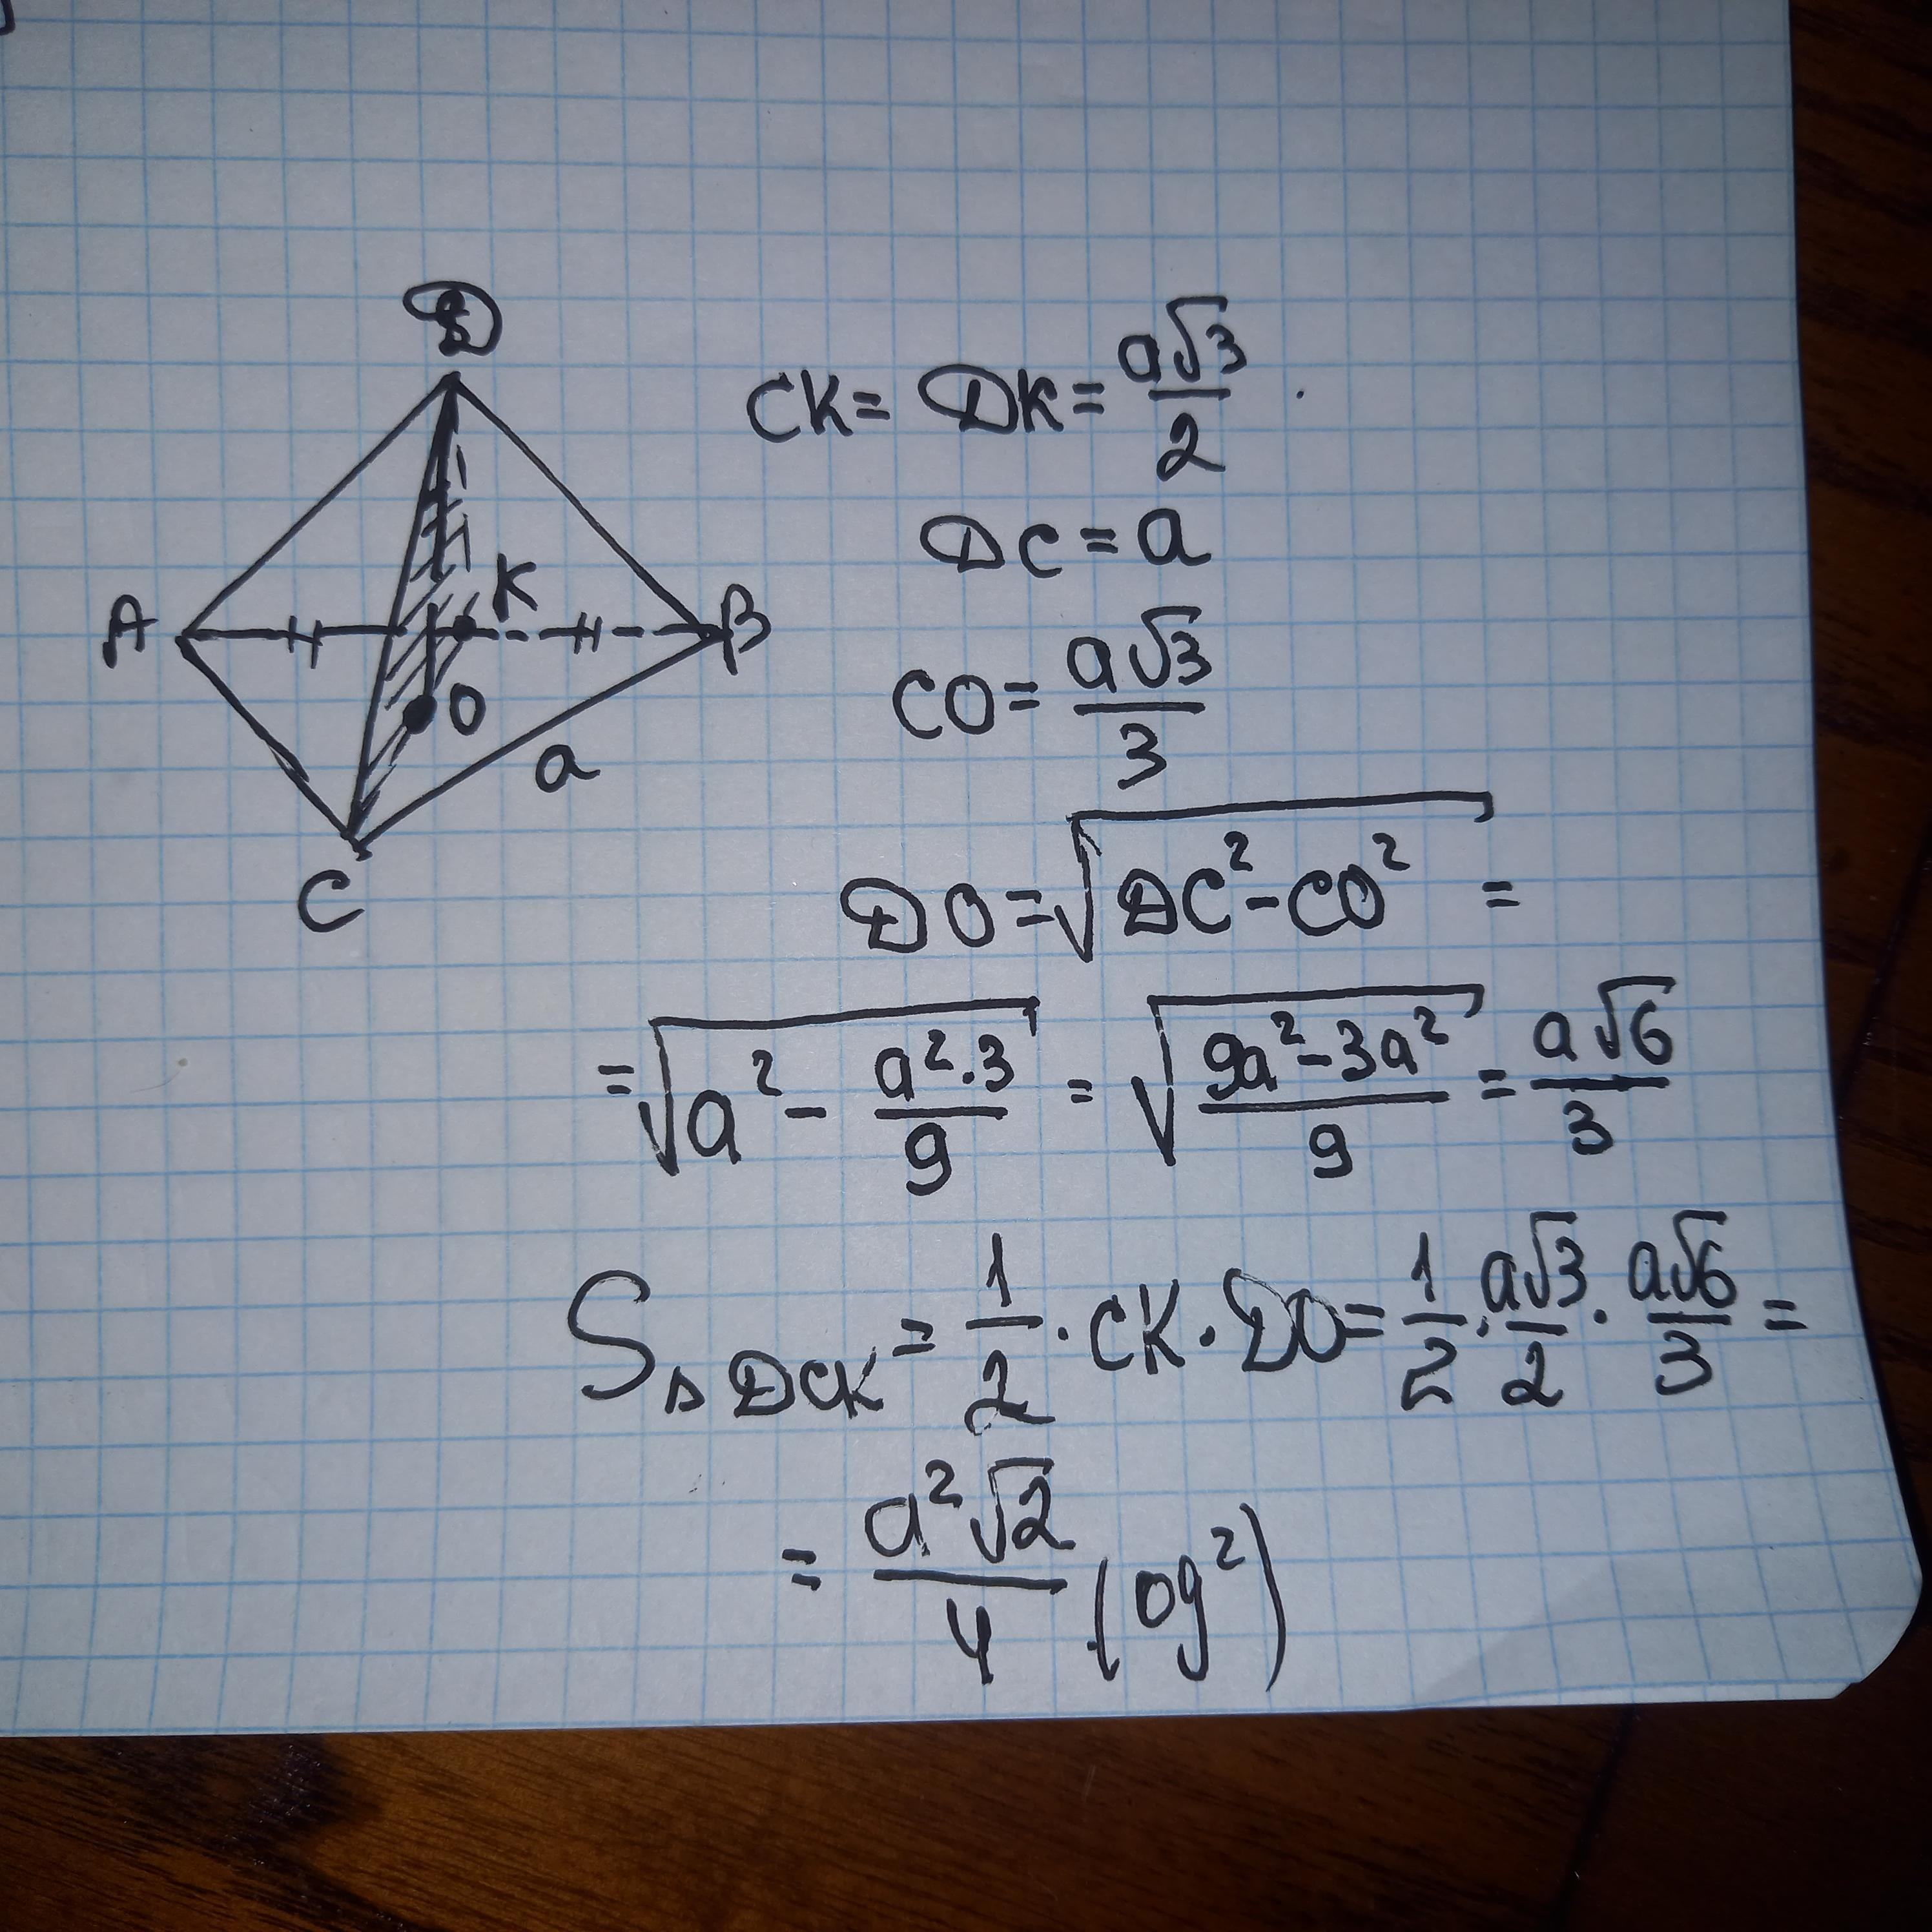 D
A
K
B
O
a
C
CK = DK = a√3/2
DC = a
CO = a√3/3
DO = √(DC² - CO²) =
= √(a² - a²·3/9) = √((9a² - 3a²)/9) = a√6/3
S△DCK = 1/2 · CK · DO = 1/2 · a√3/2 · a√6/3 =
= a²√2/4 (og²)